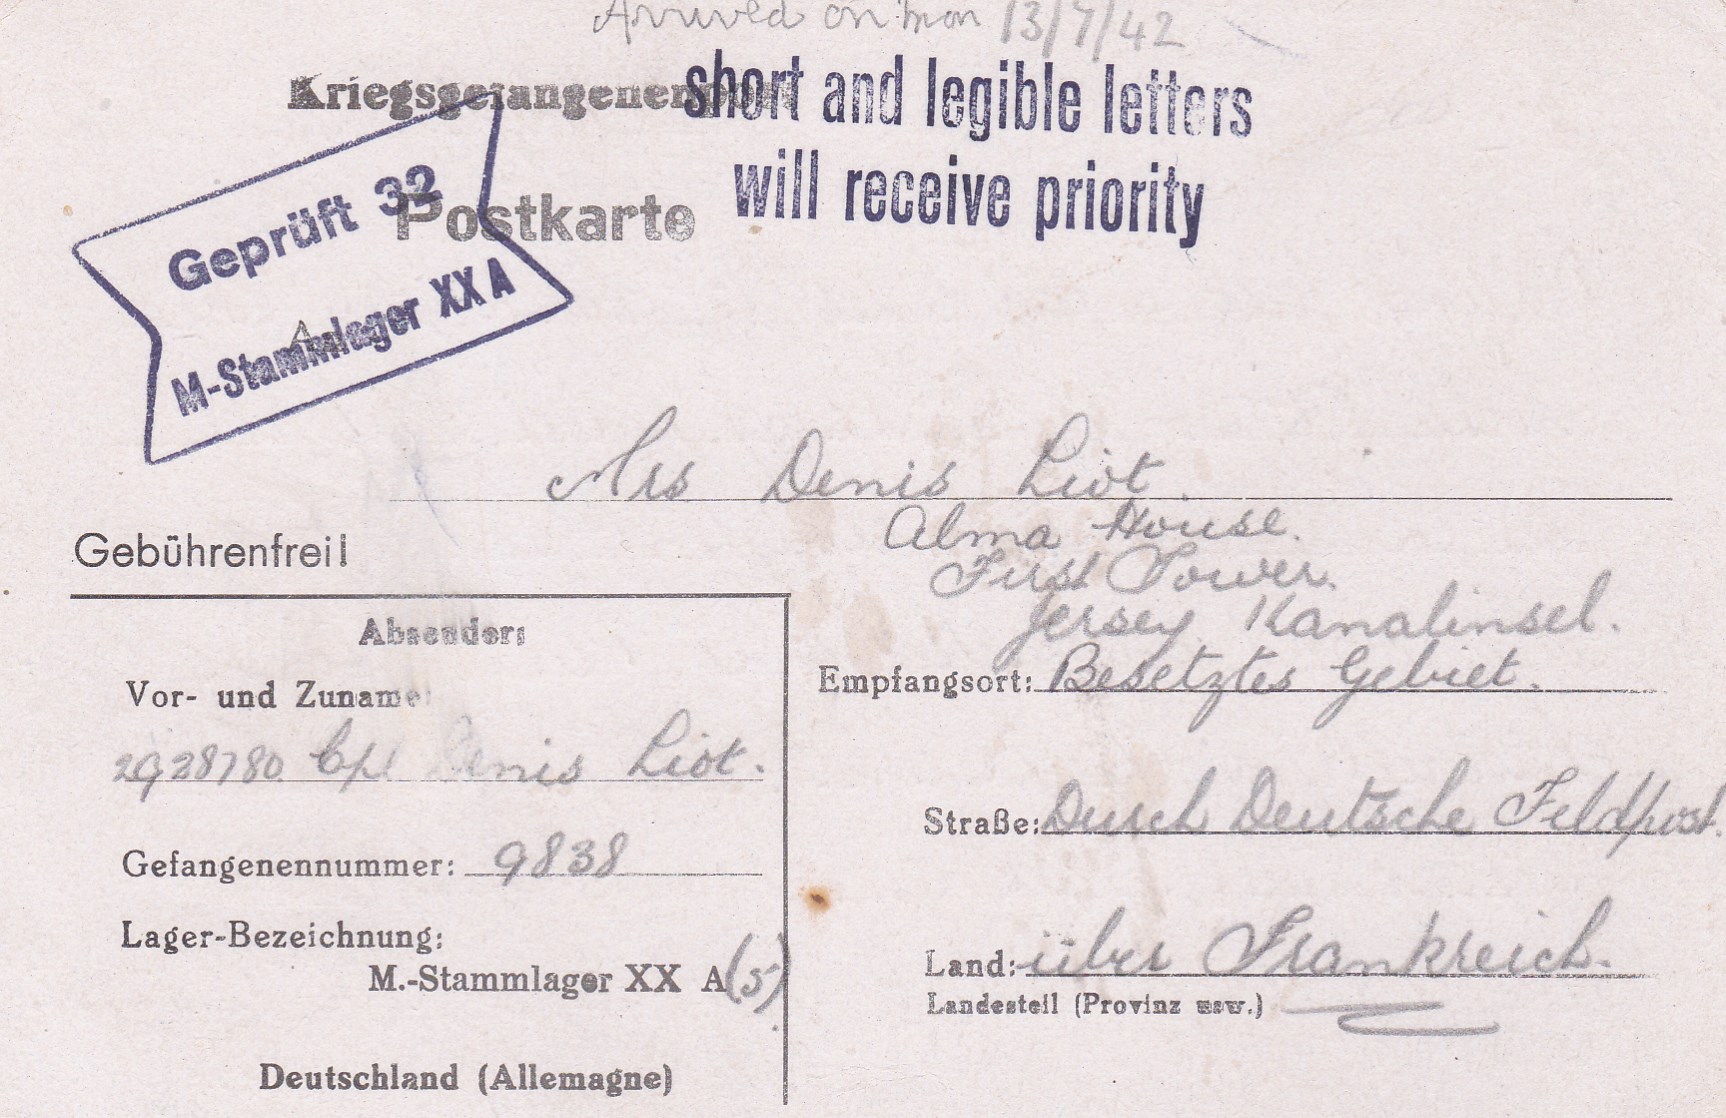 Arrived on mon 13/7/42
Kriegsgefangenenpost
short and legible letters
will receive priority
Postkarte
Geprüft 32
M-Stammlager XX A
An
Mrs Denis Liot.
Alma House.
First Tower.
Jersey Kanalinsel.
Gebührenfrei!
Absender:
Vor- und Zuname:
2928780 Cpl Denis Liot.
Gefangenennummer: 9838
Lager-Bezeichnung:
M.-Stammlager XX A (5)
Deutschland (Allemagne)
Empfangsort: Besetztes Gebiet.
Straße: Durch Deutsche Feldpost.
Land: über Frankreich.
Landesteil (Provinz usw.)